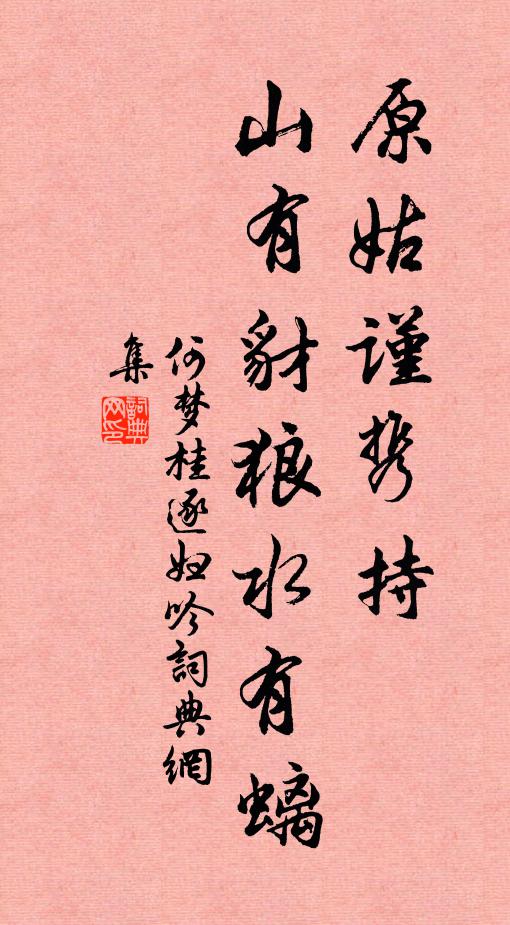 原姑谨携持
山有豺狼水有螭
何梦桂逐妇吟詞典網
集
詞典
网印